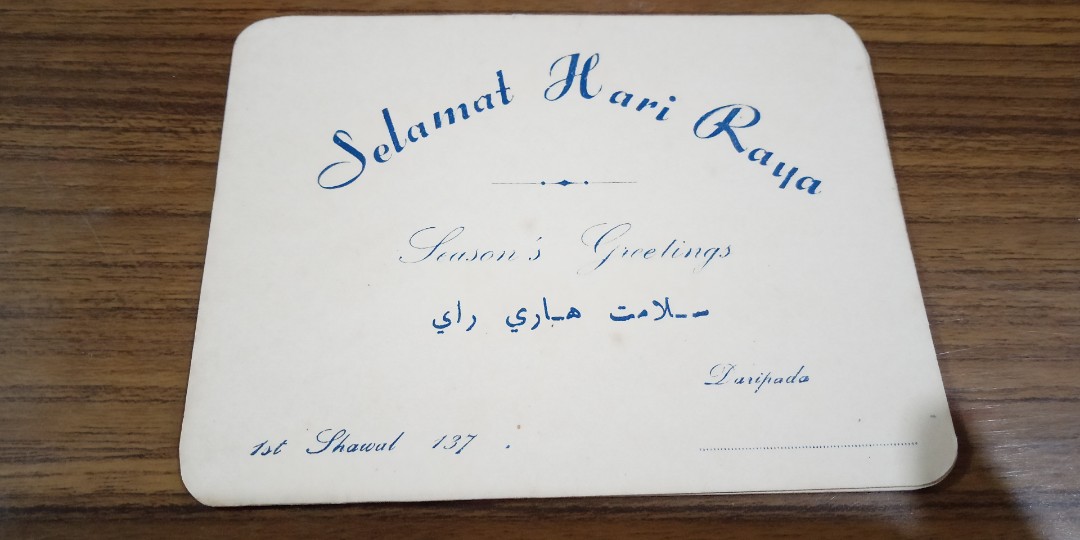 Selamat Hari Raya
Season's Greetings
سلامت هاري راي
Daripada
1st Shawal 137 .